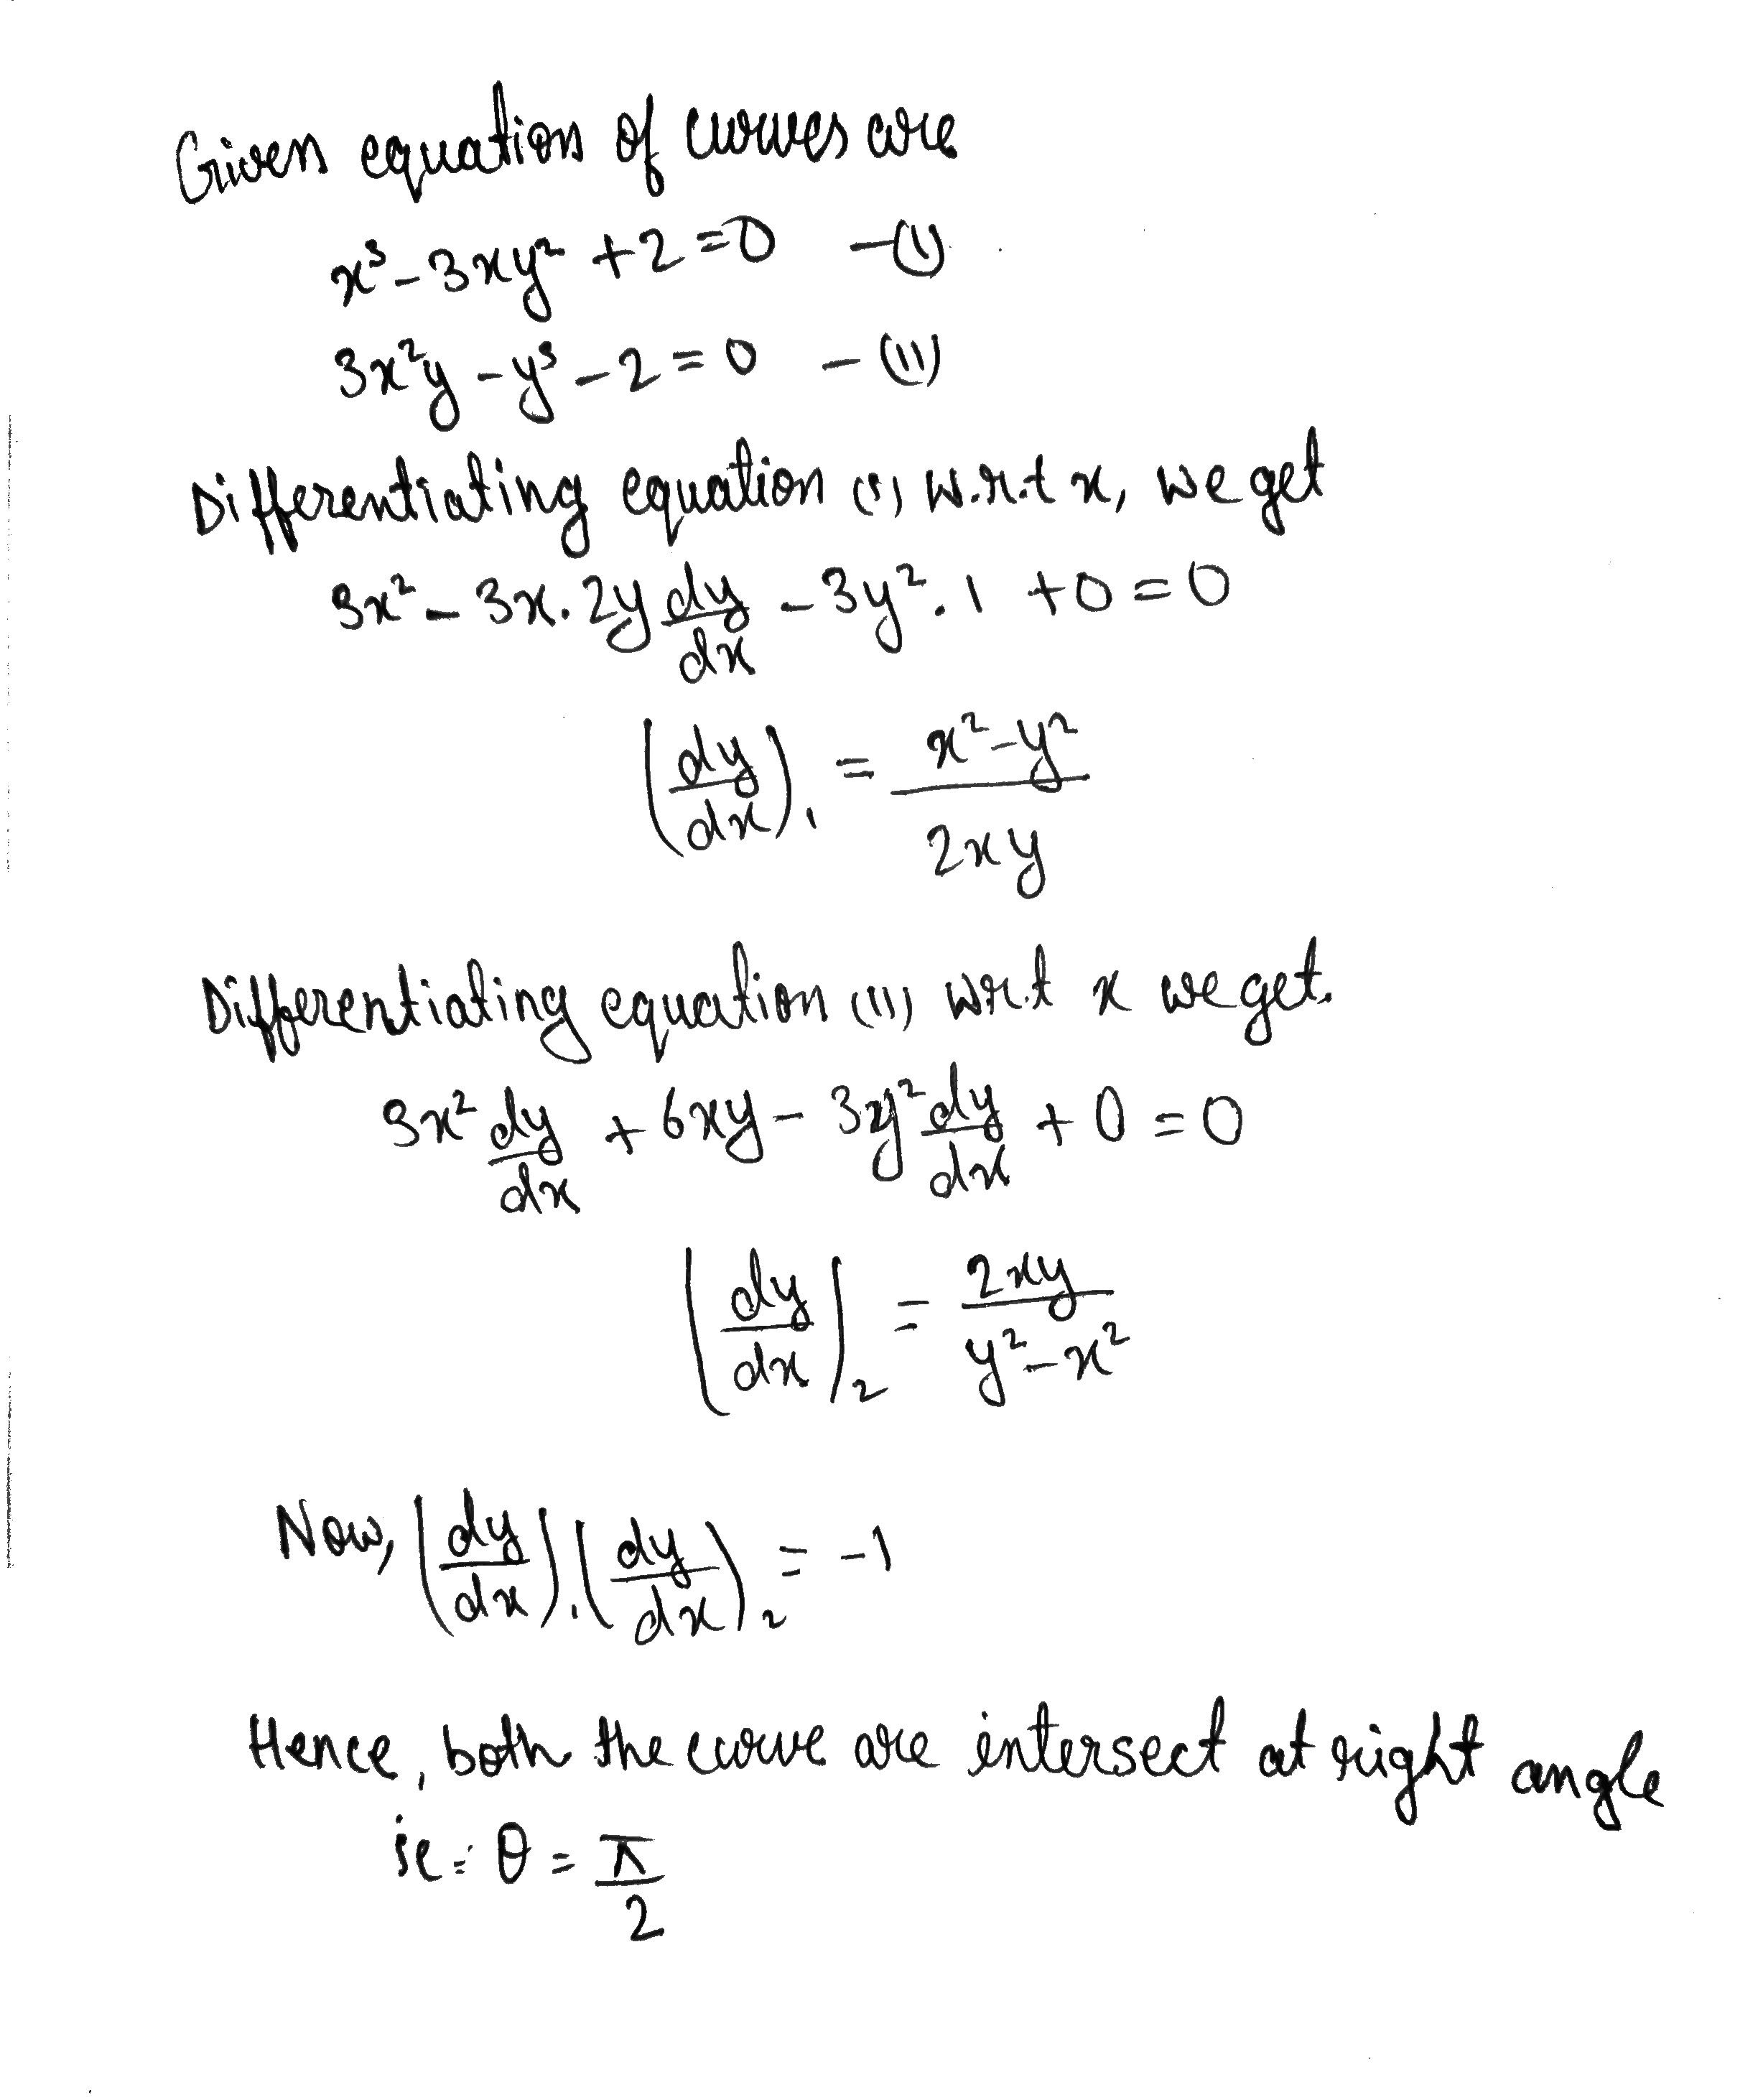 Given equation of curves are
x³ - 3xy² + 2 = 0 - (I)
3x²y - y³ - 2 = 0 - (II)
Differentiating equation (I) w.r.t x, we get
3x² - 3x.2y dy/dx - 3y².1 + 0 = 0
(dy/dx)₁ = (x² - y²)/(2xy)
Differentiating equation (II) wr.t x we get.
3x² dy/dx + 6xy - 3y² dy/dx + 0 = 0
(dy/dx)₂ = 2xy/(y² - x²)
Now, (dy/dx)₁(dy/dx)₂ = -1
Hence, both the curve are intersect at right angle
ie: θ = π/2